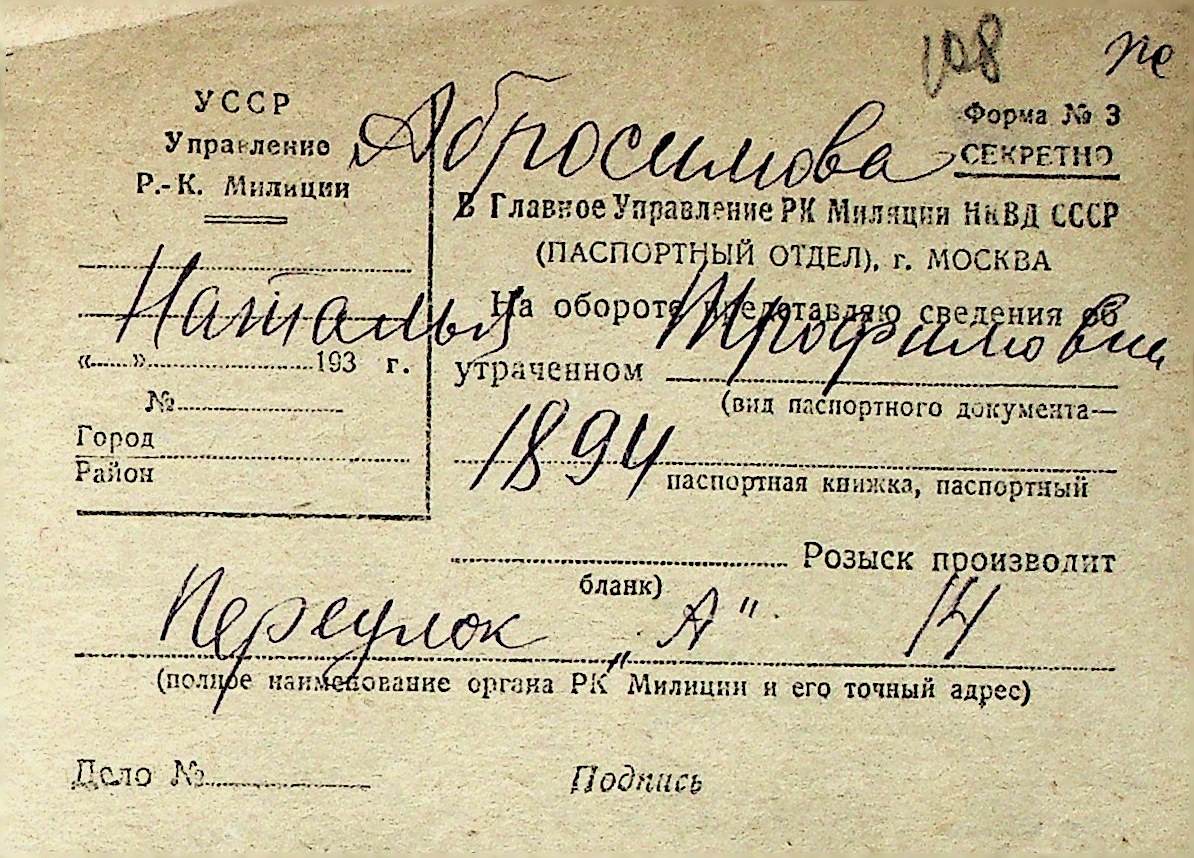 108 пе
УССР
Управление
Р.-К. Милиции
Абросимова
Форма № 3
СЕКРЕТНО
В Главное Управление РК Милиции НКВД СССР
(ПАСПОРТНЫЙ ОТДЕЛ), г. МОСКВА
Наталья Трофимовна
На обороте представляю сведения об
«......»..........................193 г.
утраченном
№
(вид паспортного документа—
Город
Район
1894
паспортная книжка, паспортный
Розыск производит
бланк)
Переулок „А" 14
(полное наименование органа РК Милиции и его точный адрес)
Дело № Подпись